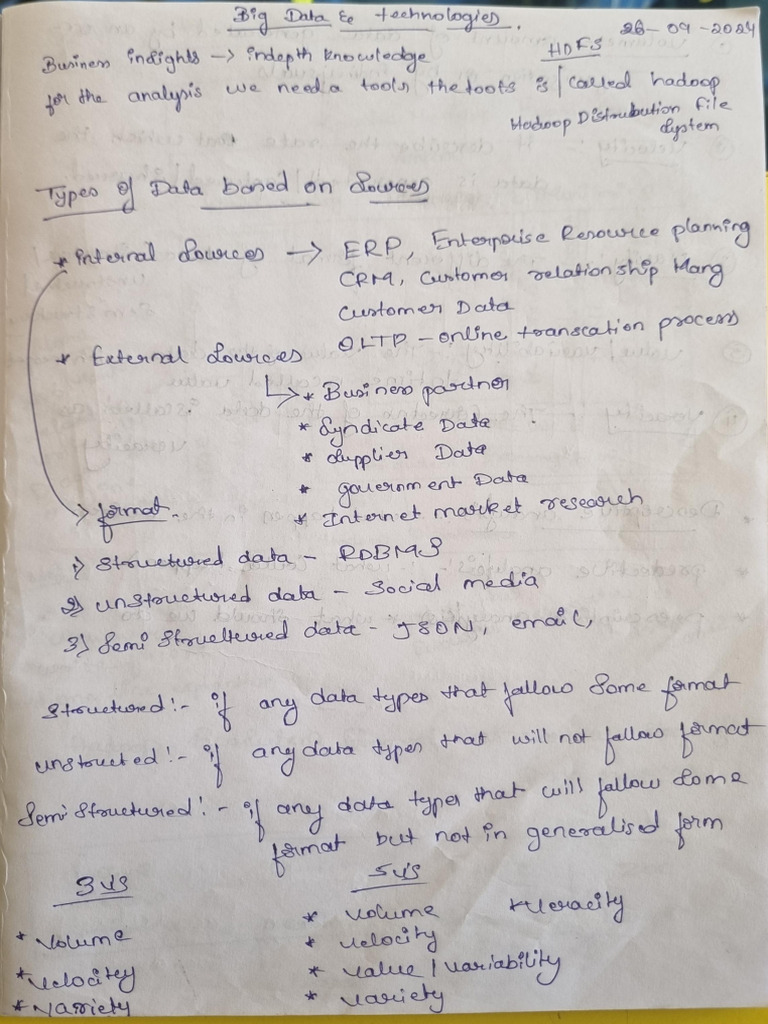 Big Data & technologies.
26-09-2024
Business insights -> indepth knowledge
HDFS
for the analysis we need a tools the tools is | called hadoop
Hadoop Distribution File
System
Types of Data based on Sources
* internal Sources -> ERP, Enterprise Resource planning
CRM, Customer relationship Mang
Customer Data
OLTP - online transcation process
* External Sources
* Business partner
* Syndicate Data
* Supplier Data
* government Data
-> format.
* Internet market research
1) Structured data - RDBMS
2) unstructured data - Social media
3) Semi Structured data - JSON, email,
Structured :- if any data types that fallow Some format
unstructed :- if any data types that will not fallow format
Semi Structured :- if any data types that will fallow Some
format but not in generalised form
3 v's
5 v's
* Volume
* Velocity
* Variety
* Volume
* Veracity
* Velocity
* Value / Variability
* Variety